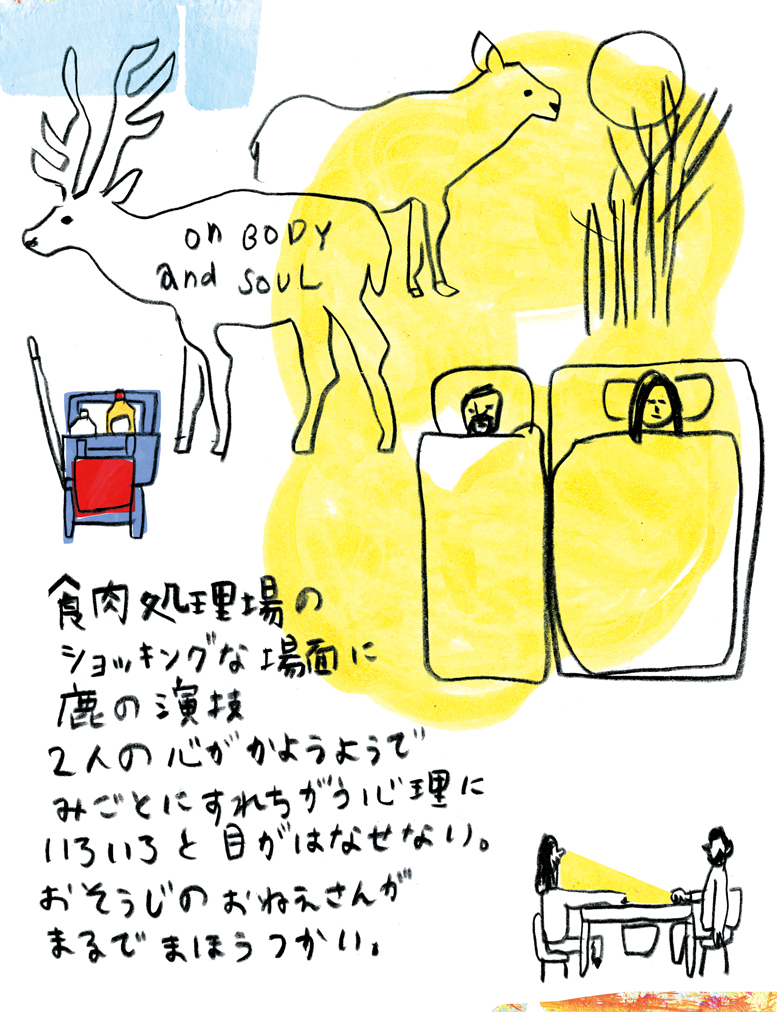 on BODY
and SOUL
食肉処理場の
ショッキングな場面に
鹿の演技
2人の心がかようようで
みごとにすれちがう心理に
いろいろと目がはなせない。
おそうじのおねえさんが
まるでまほうつかい。